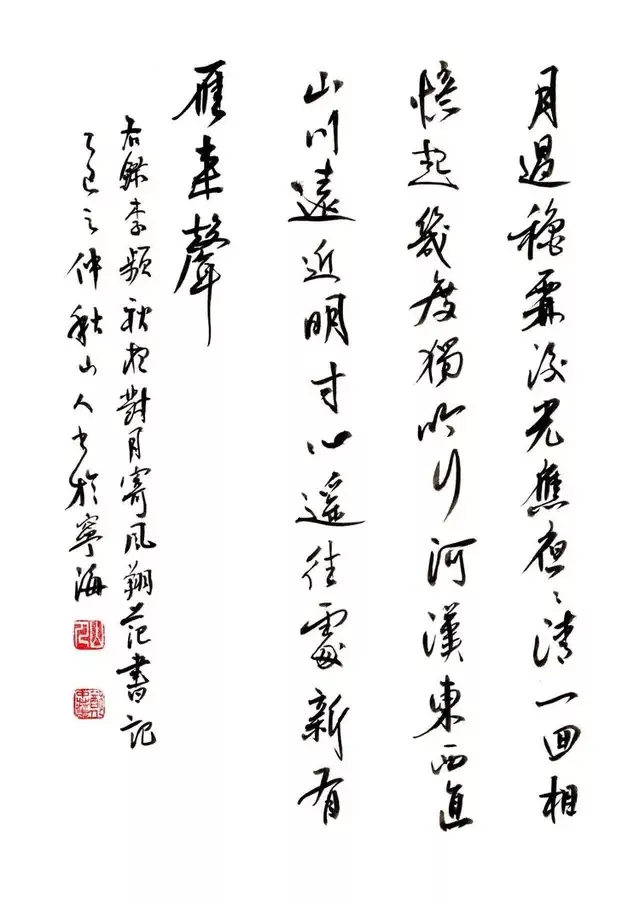 月過穐霖後光應夜々清一回相
憶起幾度獨吟行河漢東西直
山川遠近明寸心遥往處新有
雁来聲
右録李頻秋夜對月寄凤翔范書記
乙巳之仲秋山人书於寧海